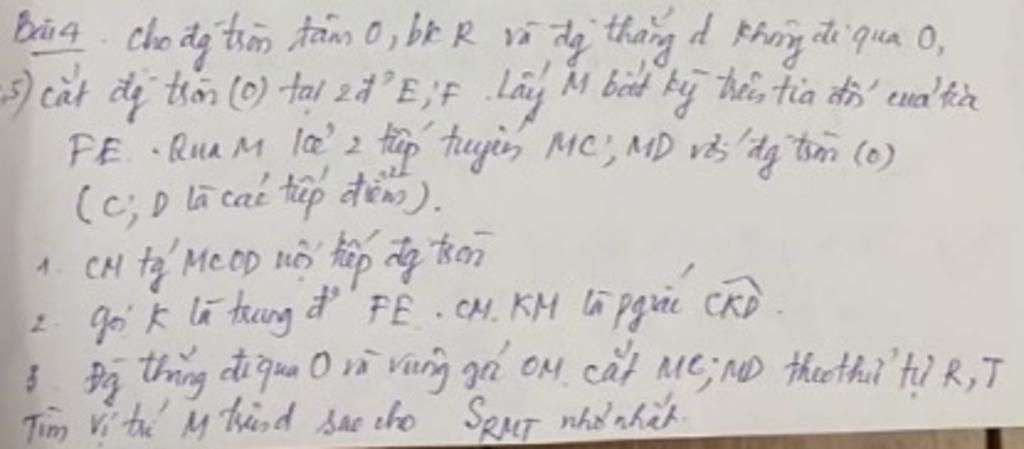 Bài 4. Cho đg tròn tâm O, bk R và đg thẳng d không đi qua O,
,5) cắt đg tròn (O) tại 2 đ' E; F. Lấy M bất kỳ trên tia đối của tia
FE. Qua M kẻ 2 tiếp tuyến MC; MD với đg tròn (O)
(C; D là các tiếp điểm).
1. CM tg MCOD nội tiếp đg tròn
2. gọi K là trung đ' FE. CM. KM là pgiác CKD.
3 Đg thẳng đi qua O và vuông gó OM. cắt MC; MD theo thứ tự R, T
Tìm vị trí M trên d sao cho SRMT nhỏ nhất.